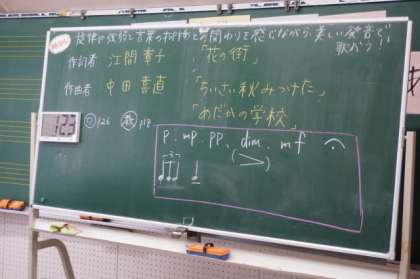 旋律や強弱と言葉の抑揚との関わりを感じながら、美しい発音で歌おう!
作詞者 江間章子 「花の街」
作曲者 中田喜直 「ちいさい秋みつけた」
「めだかの学校」
123
P26 P18
p. mp. pp. dim. mf
(>)
3